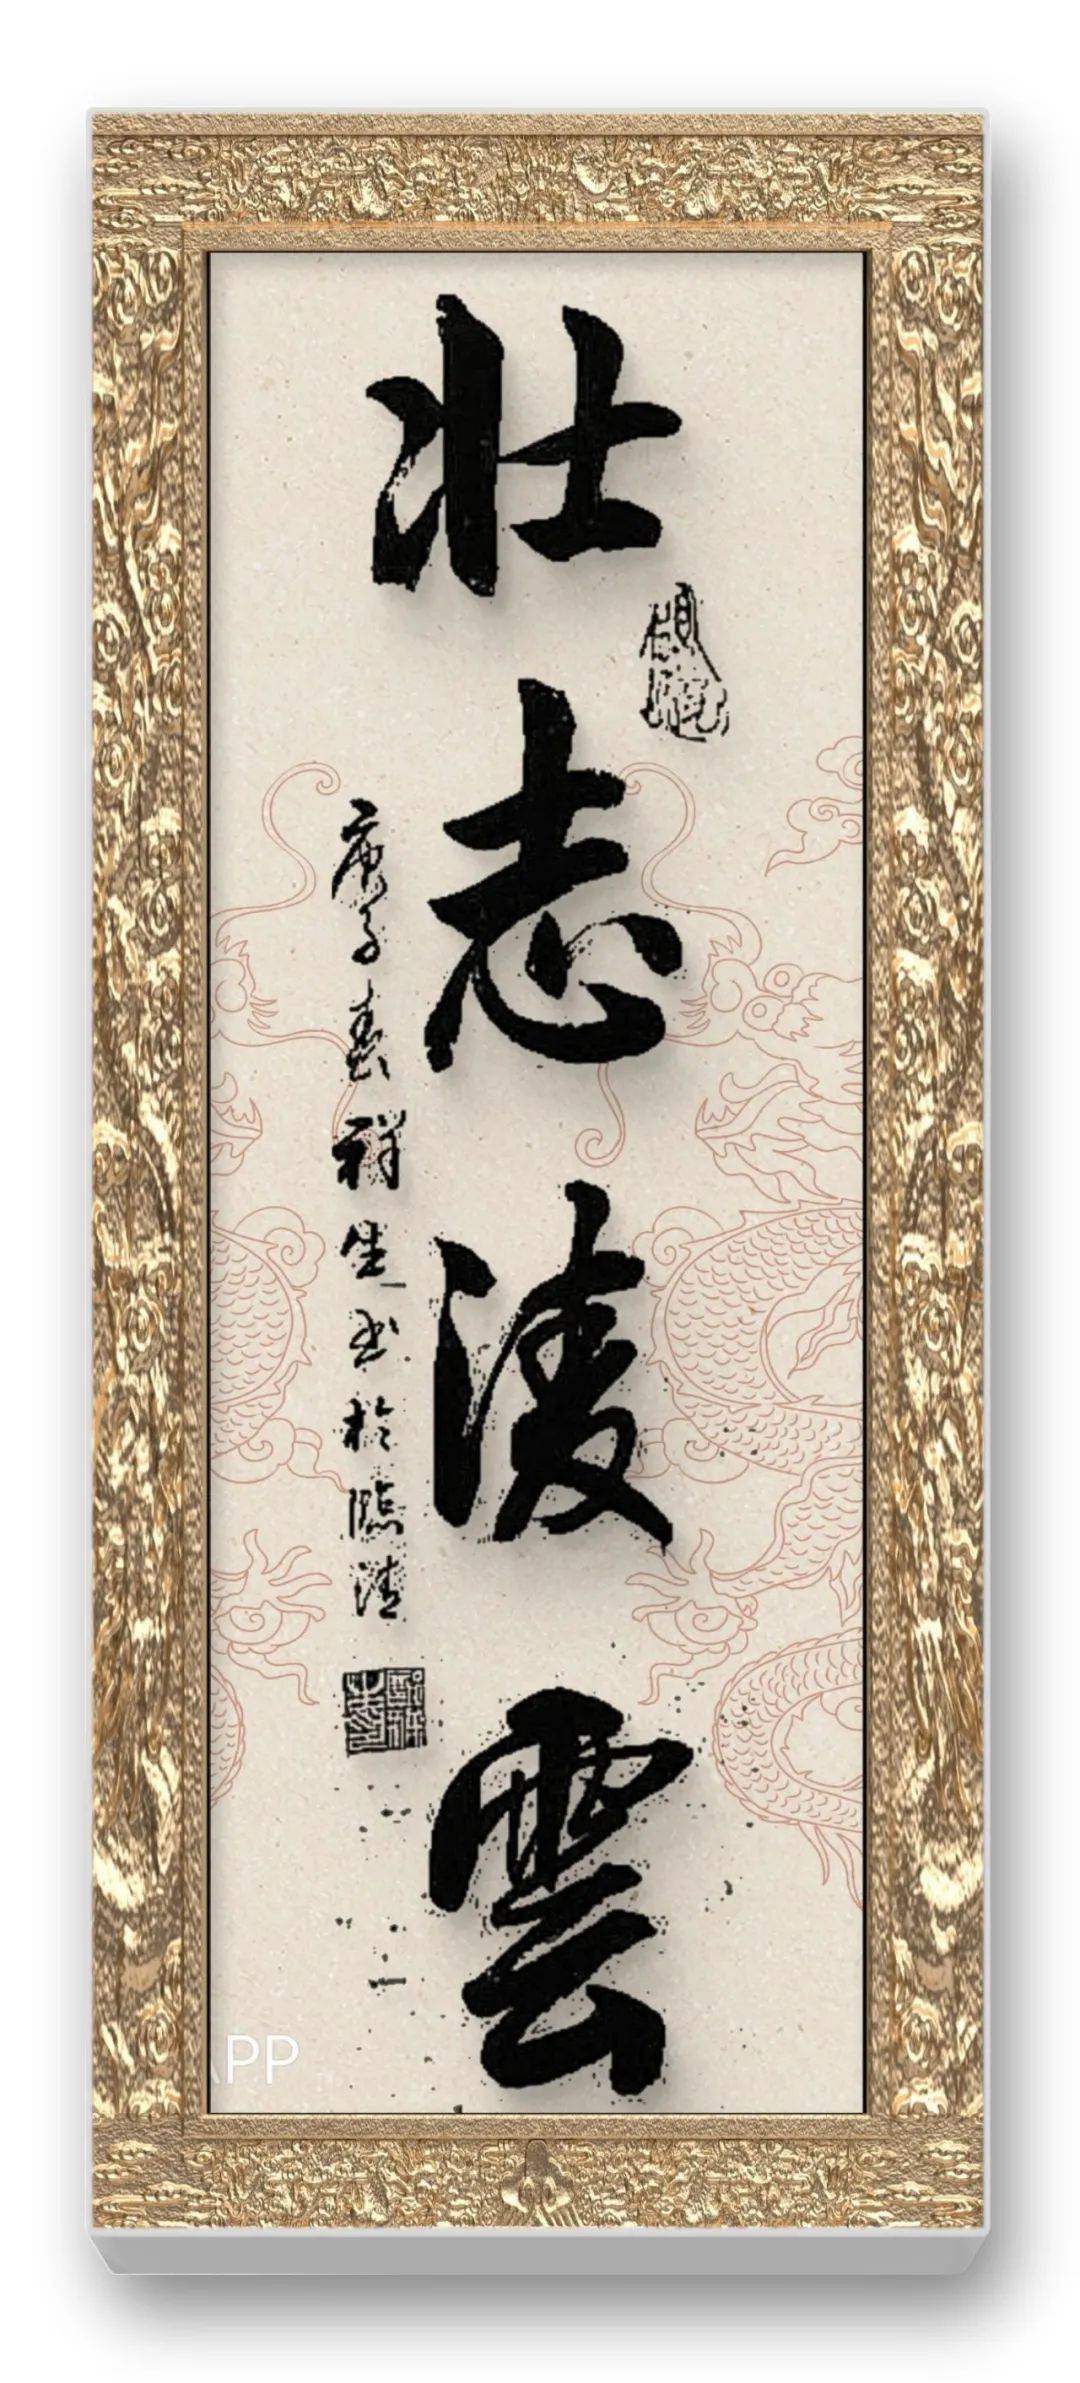 壮志凌雲
庚子春祥生书於臨清
APP